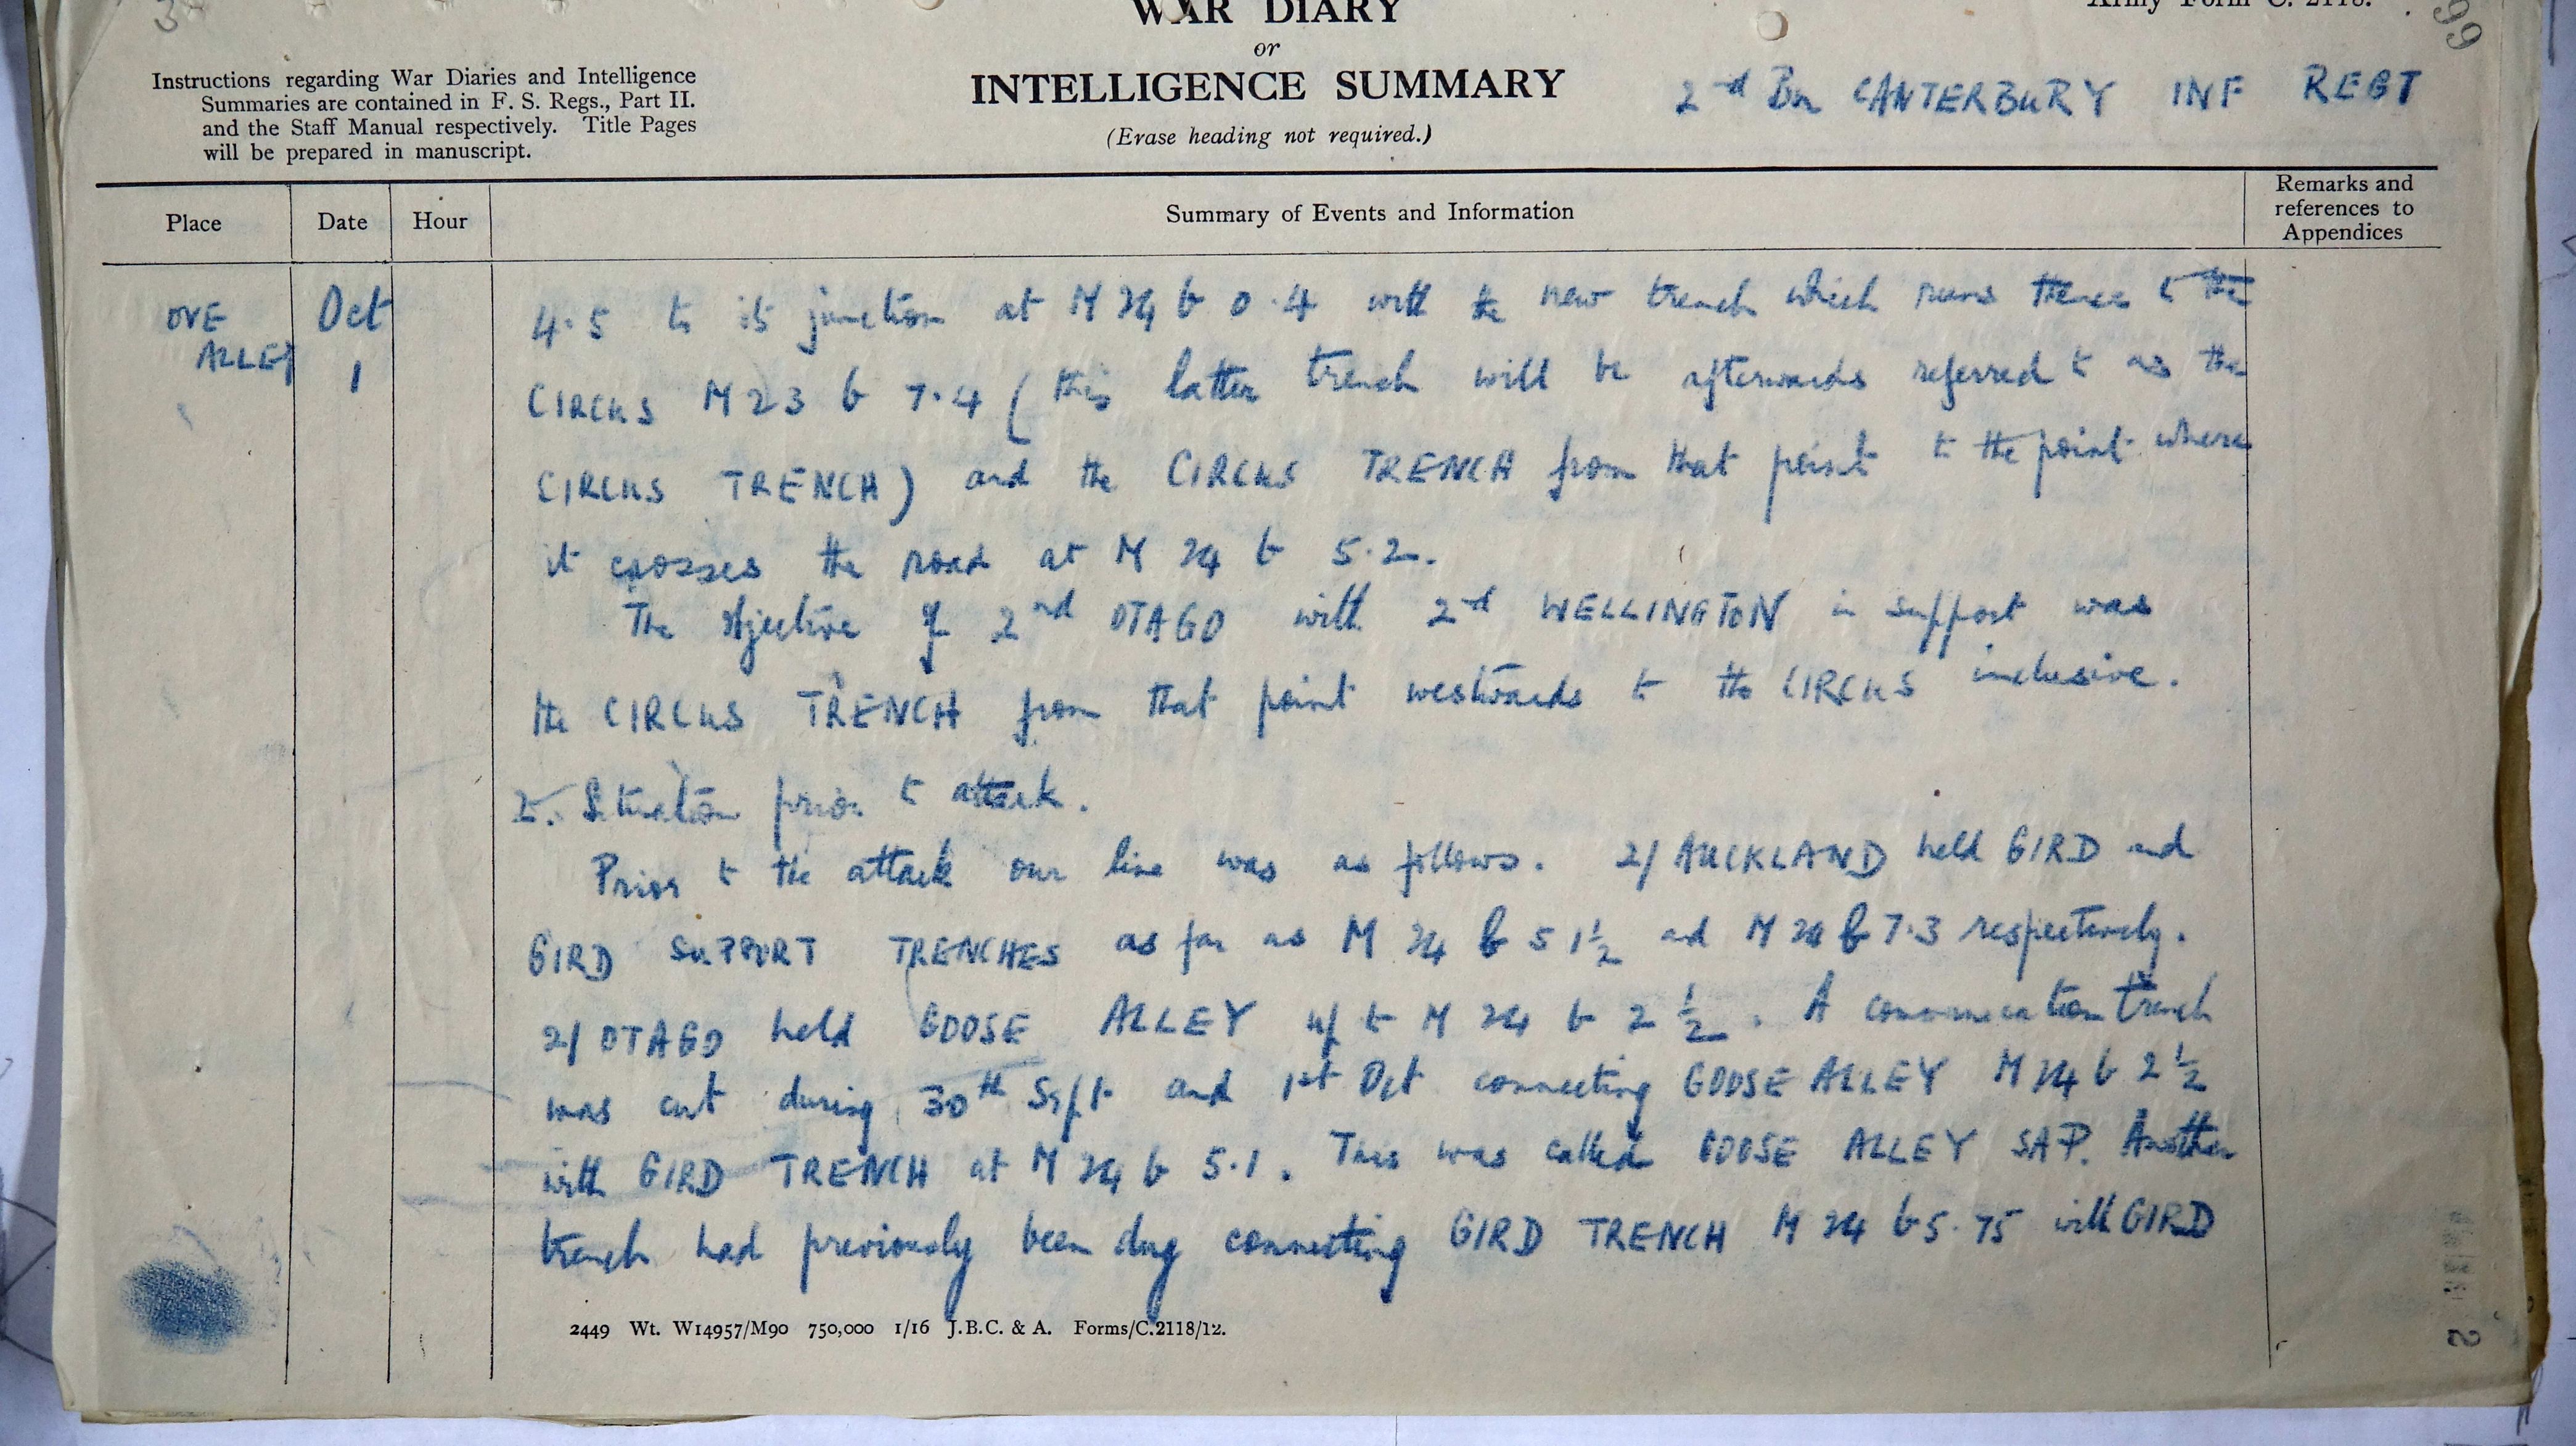 WAR DIARY
or
INTELLIGENCE SUMMARY
(Erase heading not required.)
Army Form C. 2118.
99
Instructions regarding War Diaries and Intelligence
Summaries are contained in F. S. Regs., Part II.
and the Staff Manual respectively. Title Pages
will be prepared in manuscript.
2nd Bn CANTERBURY INF REGT
Place Date Hour Summary of Events and Information Remarks and references to Appendices
OVE ALLEY
Oct 1
4.5 to its junction at M 24 b 0.4 with the new trench which runs thence to the
CIRCUS M 23 b 7.4 (this latter trench will be afterwards referred to as the
CIRCUS TRENCH) and the CIRCUS TRENCH from that point to the point where
it crosses the road at M 24 b 5.2.
The objective of 2nd OTAGO with 2nd WELLINGTON in support was
the CIRCUS TRENCH from that point westwards to the CIRCUS inclusive.
2. Situation prior to attack.
Prior to the attack our line was as follows. 2/ AUCKLAND held GIRD and
GIRD SUPPORT TRENCHES as far as M 24 b 5 1½ and M 24 b 7.3 respectively.
2/ OTAGO held GOOSE ALLEY up to M 24 b 2 ½. A communication trench
was cut during 30th Sept and 1st Oct connecting GOOSE ALLEY M 24 b 2 ½
with GIRD TRENCH at M 24 b 5.1. This was called GOOSE ALLEY SAP. Another
trench had previously been dug connecting GIRD TRENCH M 24 b 5.75 with GIRD
2449 Wt. W14957/M90 750,000 1/16 J.B.C. & A. Forms/C.2118/12.